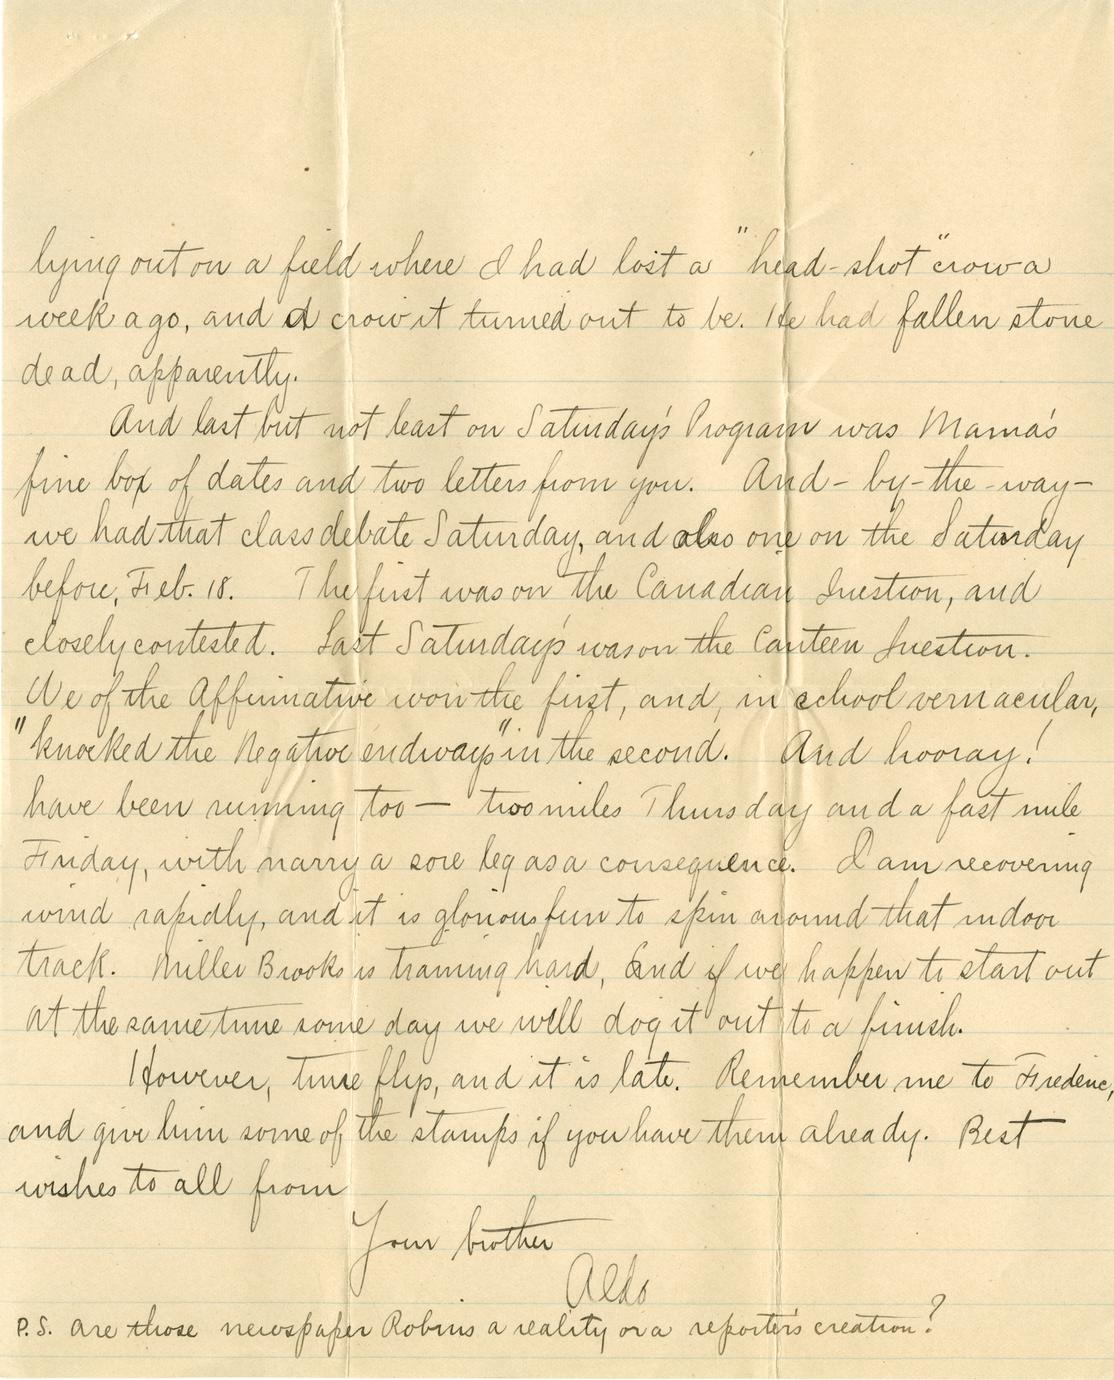 lying out on a field where I had lost a "head-shot" crow a
week ago, and A crow it turned out to be. He had fallen stone
dead, apparently.
And last but not least on Saturday's Program was Mama's
fine box of dates and two letters from you. And - by - the - way -
we had that class debate Saturday, and also one on the Saturday
before, Feb. 18. The first was on the Canadian Question, and
closely contested. Last Saturday's was on the Canteen Question.
We of the Affirmative won the first, and, in school vernacular,
"knocked the Negative endways" in the second. And hooray!
have been running too — two miles Thursday and a fast mile
Friday, with narry a sore leg as a consequence. I am recovering
wind rapidly, and it is glorious fun to spin around that indoor
track. Miller Brooks is training hard, and if we happen to start out
at the same time some day we will dog it out to a finish.
However, time flys, and it is late. Remember me to Frederic,
and give him some of the stamps if you have them already. Best
wishes to all from
Your brother
Aldo
P.S. are those newspaper Robins a reality or a reporter's creation?